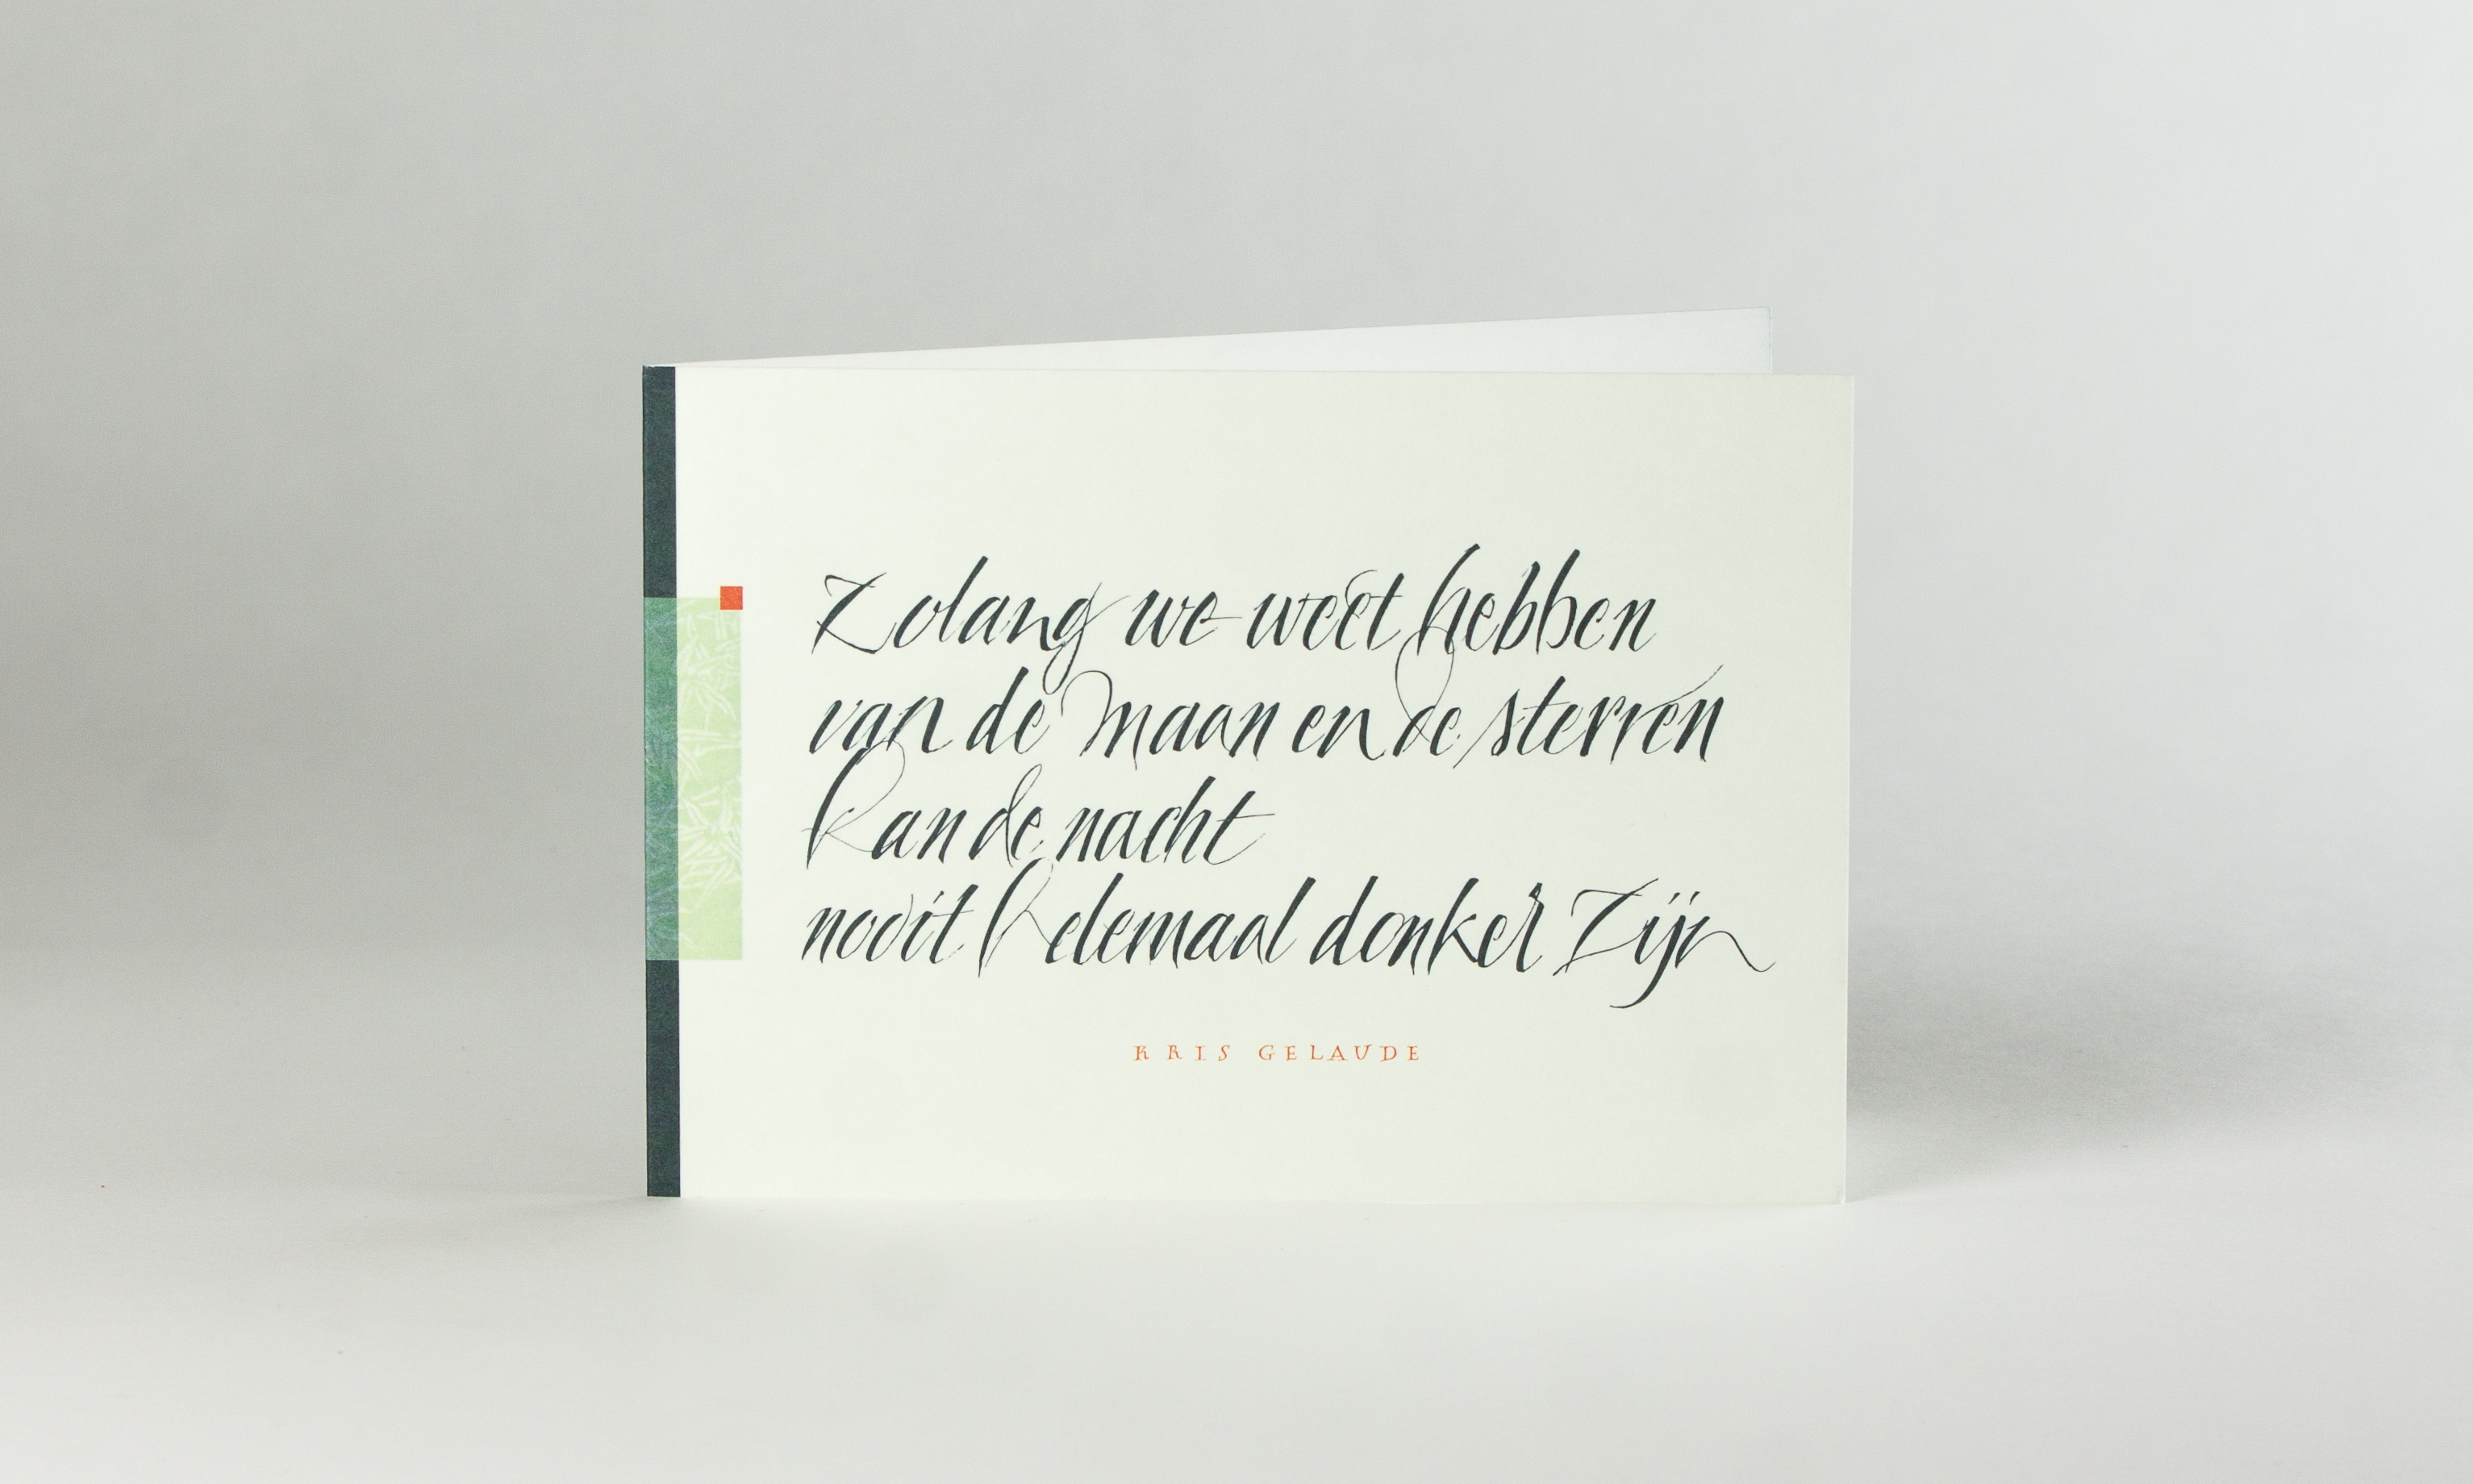 Zolang we weet hebben
van de maan en de sterren
kan de nacht
nooit helemaal donker zijn
KRIS GELAUDE